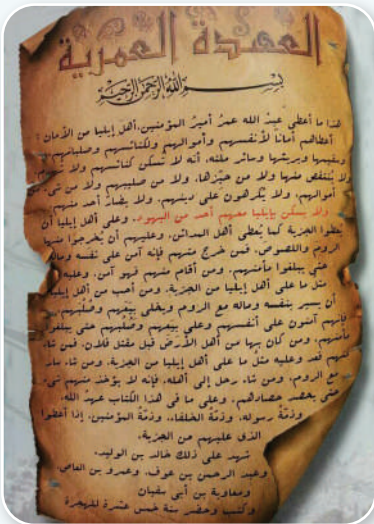 العهدة العمرية
بسم الله الرحمن الرحيم
هذا ما أعطى عبدُ الله عمرُ أميرُ المؤمنين، أهلَ إيليا من الأمان:
أعطاهم أمانًا لأنفسهم وأموالهم ولكنائسهم وصلبانهم،
وسقيمها وبريئها وسائر ملته، أنه لا تُسكن كنائسهم ولا تهدم،
ولا يُنتقص منها ولا من حيّزها، ولا من صليبهم ولا من شيء من
أموالهم، ولا يُكرهون على دينهم، ولا يضارّ أحد منهم
ولا يسكن بإيليا معهم أحد من اليهود. وعلى أهل إيليا أن
يُعطوا الجزية كما يُعطي أهل المدائن، وعليهم أن يُخرجوا منها
الروم واللصوص، فمن خرج منهم فإنه آمن على نفسه وماله
حتى يبلغوا مأمنهم، ومن أقام منهم فهو آمن، وعليه
مثل ما على أهل إيليا من الجزية، ومن أحب من أهل إيليا
أن يسير بنفسه وماله مع الروم ويخلي بِيَعهم وصُلُبهم،
فإنهم آمنون على أنفسهم وعلى بيعهم وصلبهم حتى يبلغوا
مأمنهم، ومن كان بها من أهل الأرض قبل مقتل فلان، فمن شاء
منهم قعد وعليه مثل ما على أهل إيليا من الجزية، ومن شاء سار
مع الروم، ومن شاء رجل إلى أهله، فإنه لا يؤخذ منهم شيء
حتى يحصد حصادهم، وعلى ما في هذا الكتاب عهد الله،
وذمّة رسوله، وذمّة الخلفاء، وذمّة المؤمنين، إذا أعطوا
الذي عليهم من الجزية.
شهد على ذلك خالد بن الوليد،
وعبد الرحمن بن عوف، وعمرو بن العاص،
ومعاوية بن أبي سفيان
وكُتب وحضر سنة خمس عشرة للهجرة